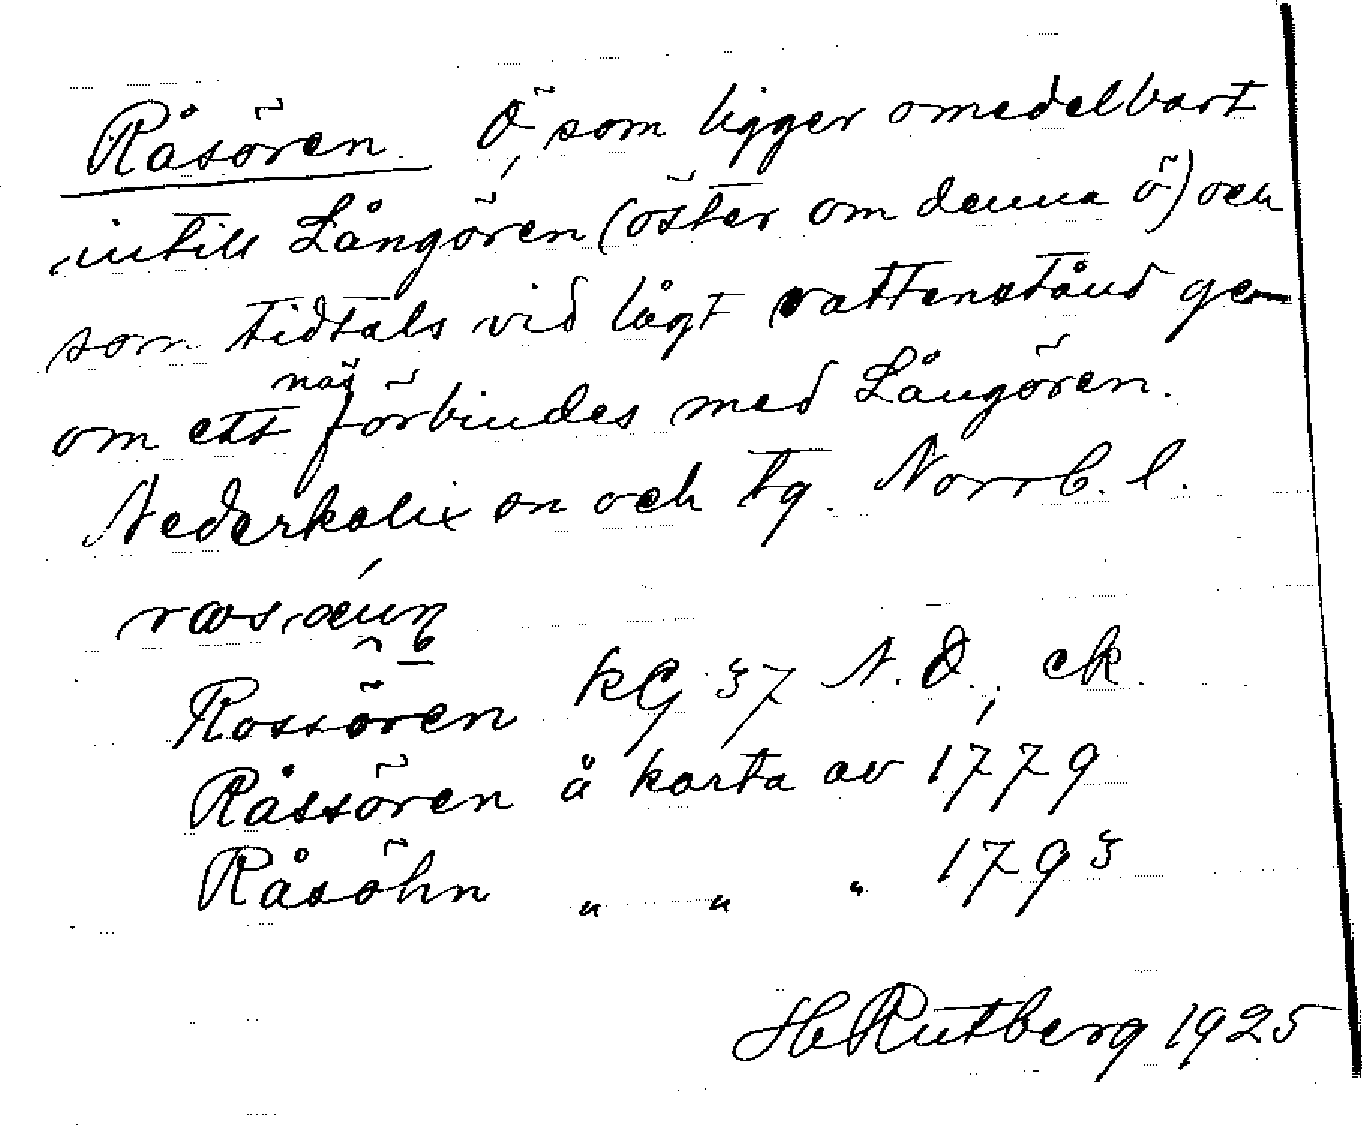 Råsören. Ö, som ligger omedelbart
intill Långören (öster om denna ö) och
som tidtals vid lågt vattenstånd gen-
om ett näs förbindes med Långören.
Nederkalix sn och tg. Norrb. l.
Rossören KG 37 N.Ö., ek.
Råssören å karta av 1779
Råsöhn " " " 1793
H Rutberg 1925